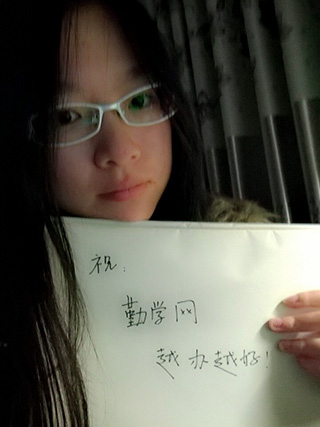 祝：
勤学网
越办越好！